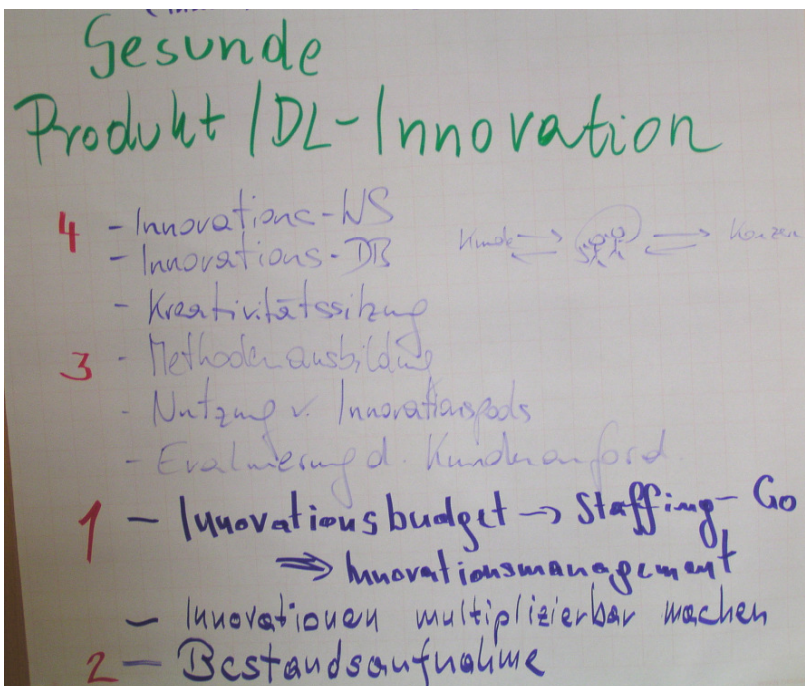 Gesunde
Produkt/DL-Innovation
4 - Innovations-WS
- Innovations-DB
Kunde Konzern
- Kreativitätssitzung
3 - Methodenausbildung
- Nutzung v. Innovationspools
- Evaluierung d. Kundenanford.
1 - Innovationsbudget → Staffing-Go
⇒ Innovationsmanagement
- Innovationen multiplizierbar machen
2 - Bestandsaufnahme